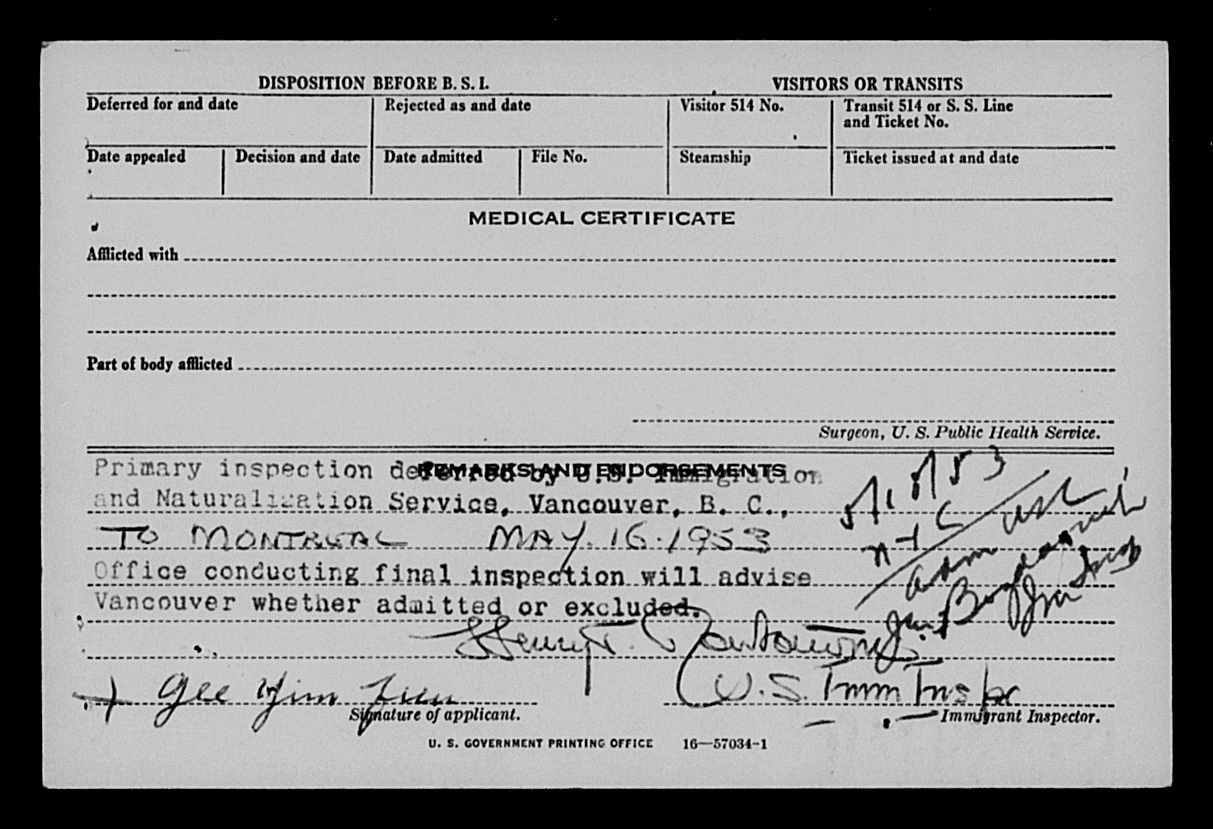 DISPOSITION BEFORE B. S. I.
VISITORS OR TRANSITS
Deferred for and date
Rejected as and date
Visitor 514 No.
Transit 514 or S. S. Line
and Ticket No.
Date appealed
Decision and date
Date admitted
File No.
Steamship
Ticket issued at and date
MEDICAL CERTIFICATE
Afflicted with
Part of body afflicted
Surgeon, U. S. Public Health Service.
REMARKS AND ENDORSEMENTS
Primary inspection deferred by U.S. Immigration
and Naturalization Service, Vancouver, B. C.,
TO MONTREAL MAY. 16. 1953
Office conducting final inspection will advise
Vancouver whether admitted or excluded.
Henry
U.S. Imm Inspr
Gee Yim
Signature of applicant.
Immigrant Inspector.
U. S. GOVERNMENT PRINTING OFFICE 16—57034-1